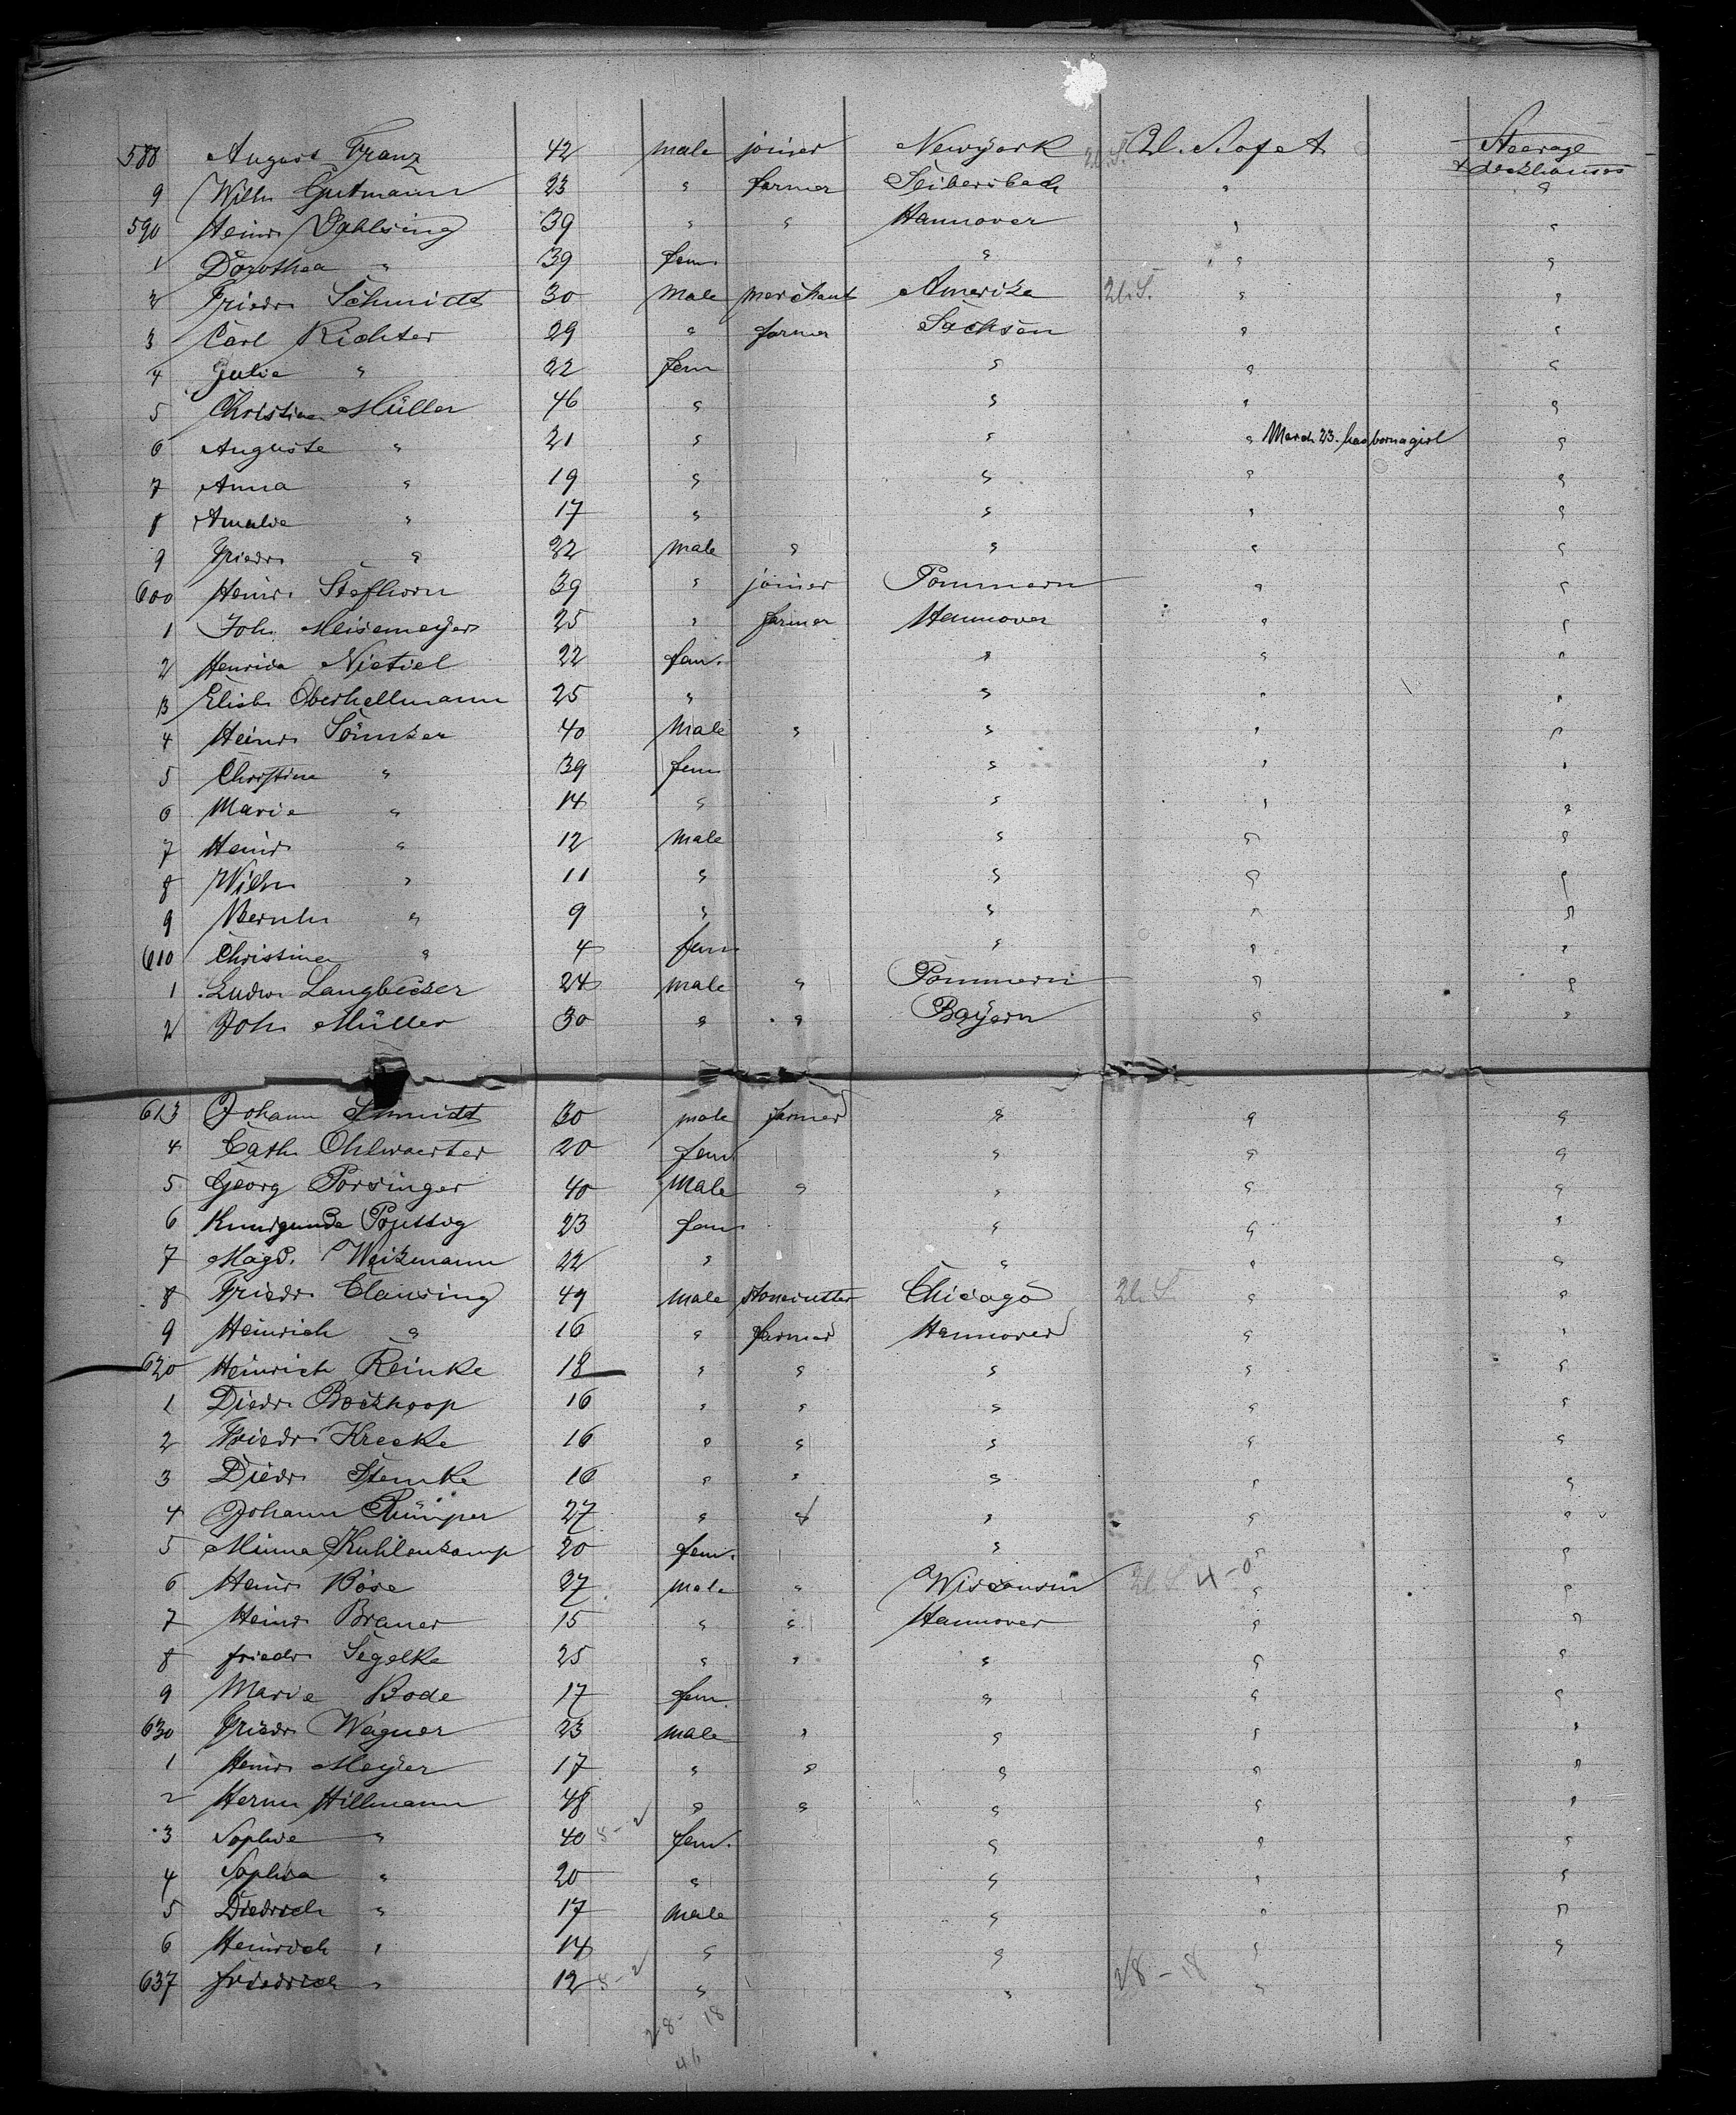 588 August Franz 42 male joiner Newyork U. S. of A Steerage
9 Wilh. Gutmann 23 " farmer Seibersbach " & deckhouses "
590 Heinr. Dahlsing 39 " " Hannover " "
1 Dorothea " 39 fem " " "
2 Friedr. Schmidt 30 male merchant Amerika U.S. " "
3 Carl Richter 29 " farmer Sachsen " "
4 Julie " 22 fem " " "
5 Christine Müller 46 " " " "
6 Auguste " 21 " " " March 23. has born a girl "
7 Anna " 19 " " " "
8 Amalie " 17 " " " "
9 Friedr. " 32 male " " " "
600 Heinr. Stefhorn 39 " joiner Pommern " "
1 Joh. Meisemeyer 25 " farmer Hannover " "
2 Henrica Nietiel 22 fem. " " "
3 Elisb. Oberhellmann 25 " " " "
4 Heinr. Sönnker 40 male " " " "
5 Christine " 39 fem " " "
6 Marie " 14 " " " "
7 Heinr. " 12 male " " "
8 Wilh. " 11 " " " "
9 Bernh. " 9 " " " "
610 Christine " 4 fem " " "
1 Ludw. Langbecker 24 male " Pommern " "
2 Joh. Müller 30 " " Bayern " "
613 Johann Schmidt 30 male farmer " " "
4 Cath. Ohlwaerter 20 fem " " "
5 Georg Porsinger 40 male " " " "
6 Kunigunda 23 fem " " "
7 Magd. Weikmann 22 " " " "
8 Friedr. Clausing 49 male stonecutter Chicago U. S " "
9 Heinrich " 16 " farmer Hannover " "
620 Heinrich Reinke 18 " " " " "
1 Diedr. Böckhoop 16 " " " " "
2 Friedr. Kreoke 16 " " " " "
3 Diedr. Stemke 16 " " " " "
4 Johann Rümper 27 " " " " "
5 Minna Kuhlenkamp 20 fem. " " "
6 Heinr. Böse 27 male " Wisconsin U S 4-0 " "
7 Heinr. Brauer 15 " " Hannover " "
8 friedr. Segelke 25 " " " " "
9 Marie Bode 17 fem. " " "
630 Friedr. Wagner 23 male " " " "
1 Heinr. Meyer 17 " " " " "
2 Herm. Hillmann 48 " " " " "
3 Sophie " 40 8-2 fem. " " "
4 Sophia " 20 " " " "
5 Diedrich " 17 male " " "
6 Heinrich " 14 " " " "
637 friedrich " 12 8-2 " " 28-18 "
28- 18
46